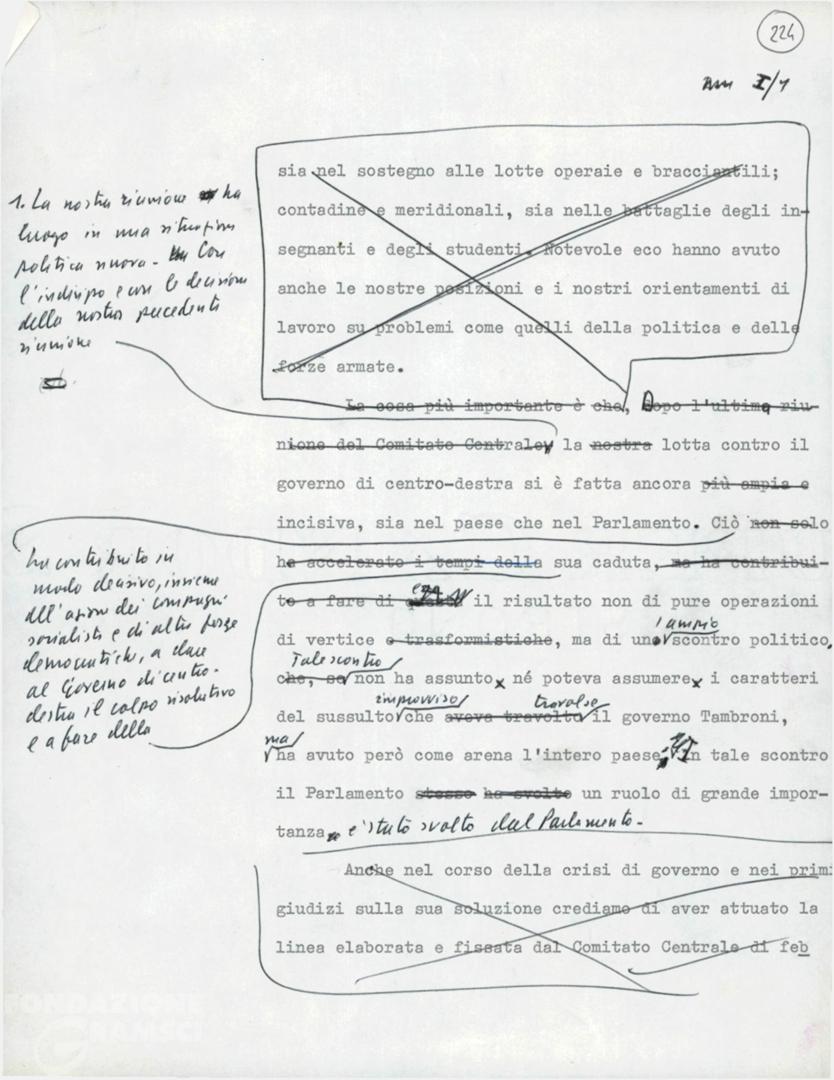 224
I/1
sia nel sostegno alle lotte operaie e bracciantili;
contadine e meridionali, sia nelle battaglie degli in-
segnanti e degli studenti. Notevole eco hanno avuto
anche le nostre posizioni e i nostri orientamenti di
lavoro su problemi come quelli della politica e delle
forze armate.
1. La nostra riunione ha
luogo in una situazione
politica nuova - Con
l'indirizzo e con le decisioni
della nostra precedente
riunione
La cosa più importante è che, Dopo l'ultima riu-
nione del Comitato Centrale, la nostra lotta contro il
governo di centro-destra si è fatta ancora più ampia e
incisiva, sia nel paese che nel Parlamento. Ciò non solo
ha contribuito in
modo decisivo, insieme
all'azione dei compagni
socialisti e di altre forze
democratiche, a dare
al Governo di centro-
destra il colpo risolutivo
e a fare della
ha accelerato i tempi della sua caduta, ma ha contribui-
to a fare di essa il risultato non di pure operazioni
di vertice e trasformistiche, ma di uno scontro politico,
l'ampio
Tale scontro
che, se non ha assunto né poteva assumere i caratteri
improvviso travolse
del sussulto che aveva travolto il governo Tambroni,
ma
ha avuto però come arena l'intero paese; In tale scontro
il Parlamento stesso ha svolto un ruolo di grande impor-
tanza e' stato svolto dal Parlamento.
Anche nel corso della crisi di governo e nei primi
giudizi sulla sua soluzione crediamo di aver attuato la
linea elaborata e fissata dal Comitato Centrale di feb
FONDAZIONE
GRAMSCI